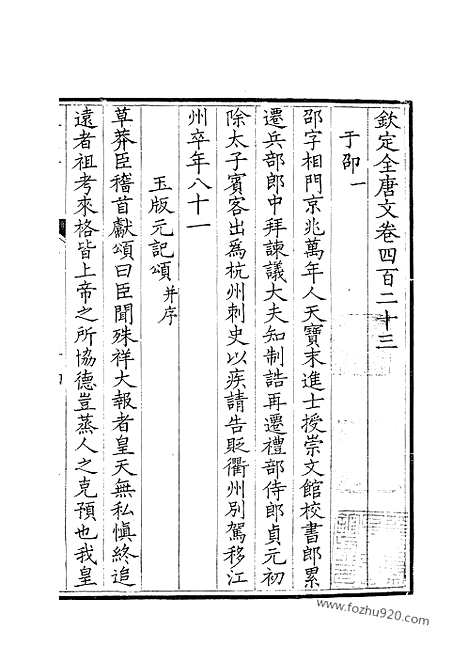 欽定全唐文卷四百二十三
于邵一
邵字相門京兆萬年人天寶末進士授崇文館校書郎累
遷兵部郎中拜諫議大夫知制誥再遷禮部侍郎貞元初
除太子賓客出為杭州刺史以疾請告貶衢州別駕移江
州卒年八十一
玉版元記頌并序
草莽臣稽首獻頌曰臣聞殊祥大報者皇天無私慎終追
遠者祖考來格皆上帝之所協德豈蒸人之克預也我皇
www.fozhu920.com